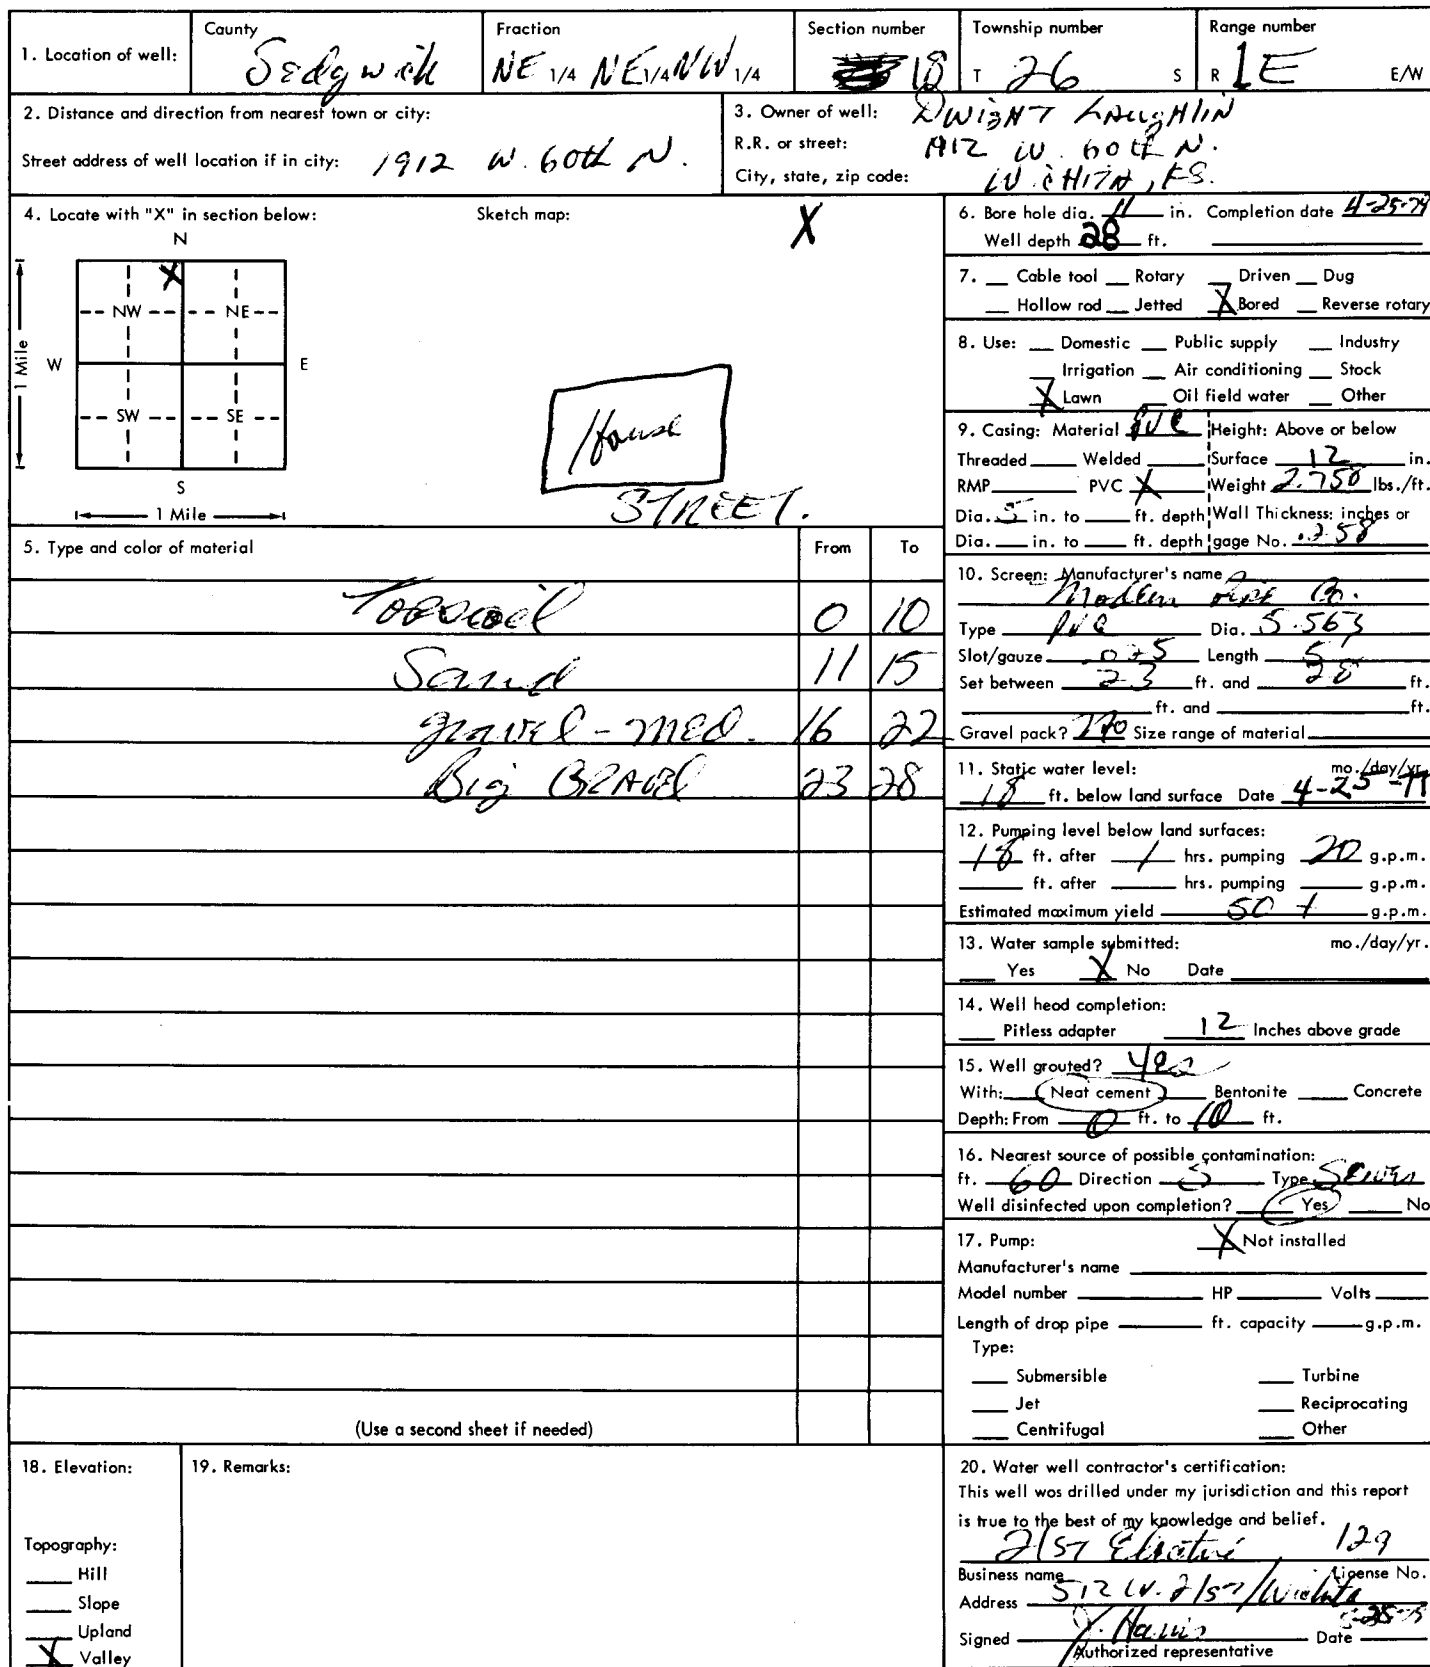 1. Location of well: County Sedgwick Fraction NE 1/4 NE 1/4 NW 1/4 Section number 18 Township number T 26 S Range number R 1E E/W
2. Distance and direction from nearest town or city:
Street address of well location if in city: 1912 W. 60th N.
3. Owner of well: DWIGHT LAUGHLIN
R.R. or street: 1912 W. 60th N.
City, state, zip code: WICHITA, KS.
4. Locate with "X" in section below: Sketch map:
X
N
X
NW NE
W E
1 Mile
SW SE
S
1 Mile
House
STREET.
5. Type and color of material From To
Topsoil 0 10
Sand 11 15
gravel - med. 16 22
Big GRAVEL 23 28
(Use a second sheet if needed)
6. Bore hole dia. 11 in. Completion date 4-25-79
Well depth 28 ft.
7. Cable tool Rotary Driven Dug
Hollow rod Jetted X Bored Reverse rotary
8. Use: Domestic Public supply Industry
Irrigation Air conditioning Stock
X Lawn Oil field water Other
9. Casing: Material PVC Height: Above or below
Threaded Welded Surface 12 in.
RMP PVC X Weight 2.750 lbs./ft.
Dia. 5 in. to ft. depth Wall Thickness: inches or
Dia. in. to ft. depth gage No. .258
10. Screen: Manufacturer's name
Modern Pipe Co.
Type PVC Dia. 5.563
Slot/gauze .035 Length 5
Set between 23 ft. and 28 ft.
ft. and ft.
Gravel pack? no Size range of material
11. Static water level: mo./day/yr.
18 ft. below land surface Date 4-25-79
12. Pumping level below land surfaces:
18 ft. after 1 hrs. pumping 20 g.p.m.
ft. after hrs. pumping g.p.m.
Estimated maximum yield 50 + g.p.m.
13. Water sample submitted: mo./day/yr.
Yes X No Date
14. Well head completion:
Pitless adapter 12 Inches above grade
15. Well grouted? yes
With: Neat cement Bentonite Concrete
Depth: From 0 ft. to 10 ft.
16. Nearest source of possible contamination:
ft. 60 Direction S Type Sewer
Well disinfected upon completion? Yes No
17. Pump: X Not installed
Manufacturer's name
Model number HP Volts
Length of drop pipe ft. capacity g.p.m.
Type:
Submersible Turbine
Jet Reciprocating
Centrifugal Other
18. Elevation:
Topography:
Hill
Slope
Upland
X Valley
19. Remarks:
20. Water well contractor's certification:
This well was drilled under my jurisdiction and this report
is true to the best of my knowledge and belief.
21st Electric 129
Business name License No.
Address 512 W. 21st / Wichita
Signed J. Harris Date
Authorized representative